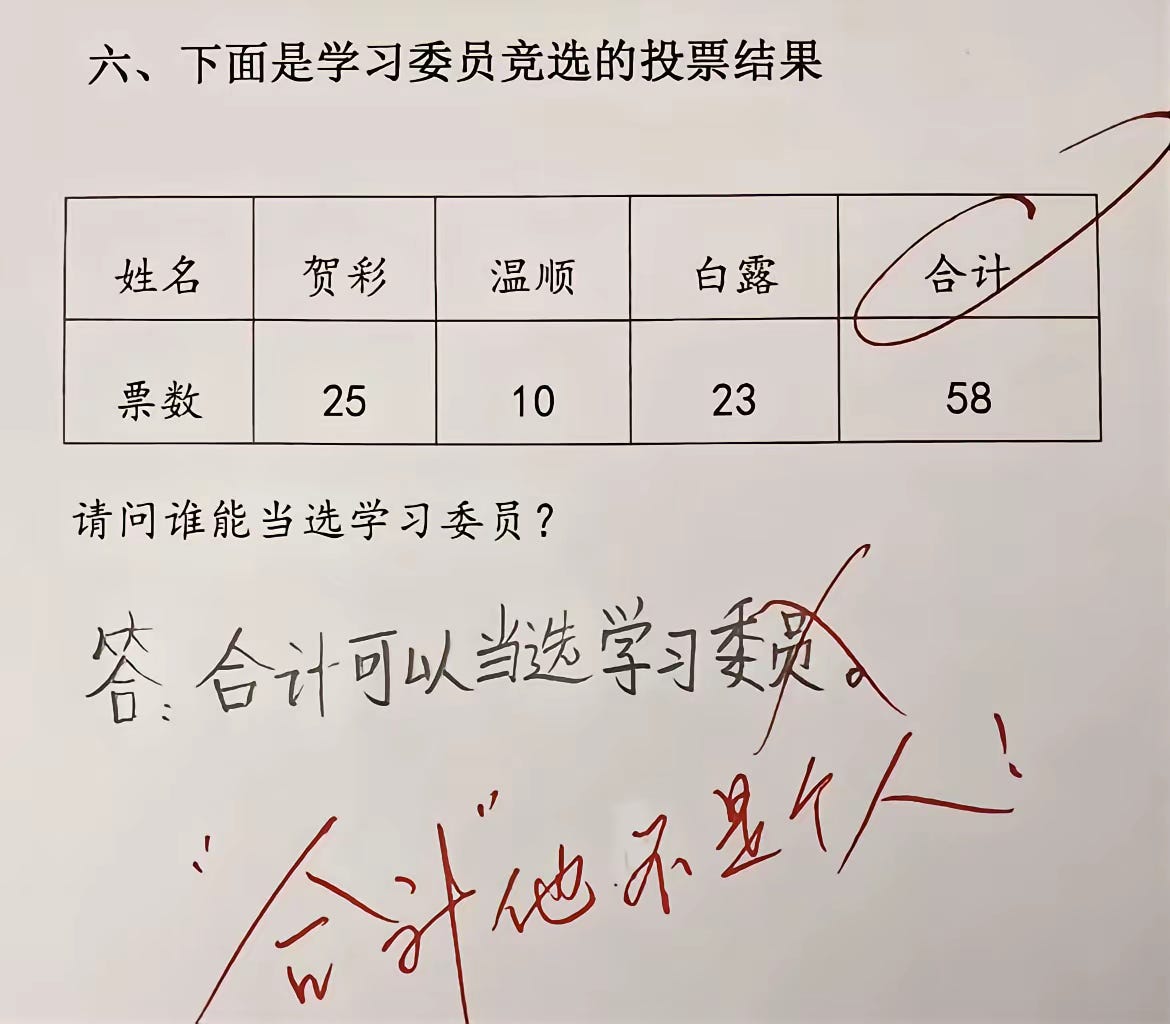 六、下面是学习委员竞选的投票结果
姓名 贺彩 温顺 白露 合计
票数 25 10 23 58
请问谁能当选学习委员?
答:合计可以当选学习委员。
“合计”他不是个人!